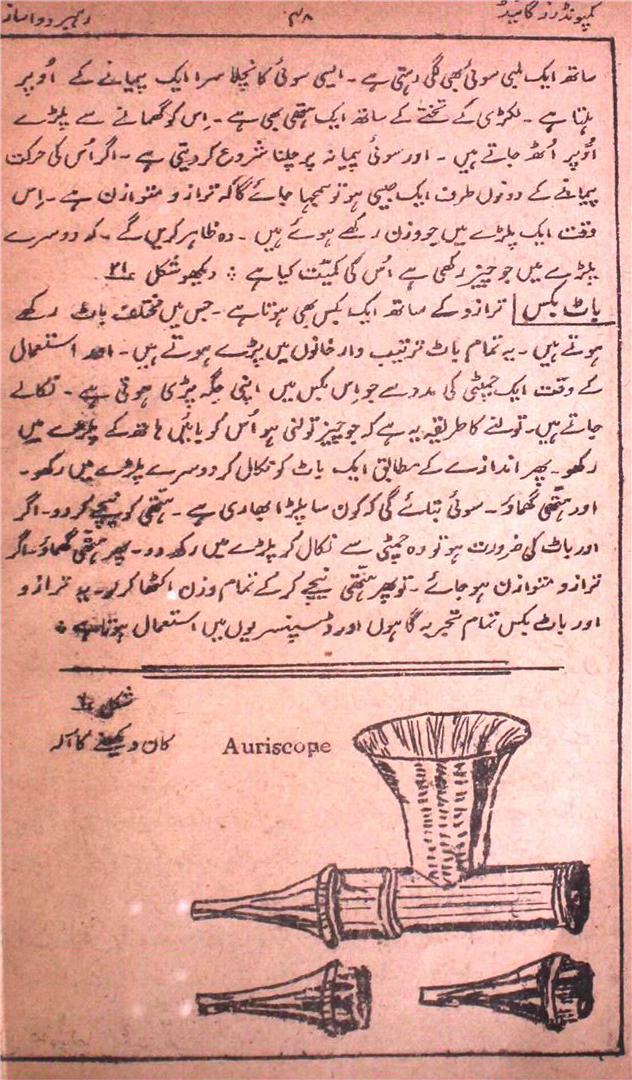 کمپونڈرز گائیڈ ۴۸ رہبر دواساز
ساتھ ایک لمبی سوئی بھی لگی رہتی ہے ۔ ایسی سوئی کا نچلا سرا ایک پیمانے کے اُوپر
ہلتا ہے ۔ لکڑی کے تختے کے ساتھ ایک ہتھی بھی ہے ۔ اِس کو گھمانے سے پلڑے
اُوپر اُٹھ جاتے ہیں ۔ اور سوئی پیمانہ پر چلنا شروع کر دیتی ہے ۔ اگر اُس کی حرکت
پیمانے کے دونوں طرف ایک جیسی ہو تو سمجھا جائے گا کہ ترازو متوازن ہے ۔ اِس
وقت ایک پلڑے میں جو وزن رکھے ہوئے ہیں ۔ وہ ظاہر کریں گے ۔ کہ دوسرے
پلڑے میں جو چیز رکھی ہے اُس کی کمیّت کیا ہے ۔ دیکھو شکل ۲۱
باٹ بکس ترازو کے ساتھ ایک بکس بھی ہوتا ہے ۔ جس میں مختلف باٹ رکھے
ہوتے ہیں ۔ یہ تمام باٹ ترتیب وار خانوں میں پڑے ہوتے ہیں ۔ اور استعمال
کے وقت ایک چمٹی کی مدد سے جو اِس بکس میں اپنی جگہ پڑی ہوتی ہے ۔ نکالے
جاتے ہیں ۔ تولنے کا طریقہ یہ ہے کہ جو چیز تولنی ہو اُس کو بائیں ہاتھ کے پلڑے میں
رکھو ۔ پھر اندازے کے مطابق ایک باٹ کو نکال کر دوسرے پلڑے میں رکھو ۔
اور ہتھی گھماؤ ۔ سوئی بتائے گی کہ کون سا پلڑا بھاری ہے ۔ ہتھی کو نیچے کر دو ۔ اگر
اور باٹ کی ضرورت ہو تو وہ چمٹی سے نکال کر پلڑے میں رکھ دو ۔ پھر ہتھی گھماؤ ۔ اگر
ترازو متوازن ہو جائے ۔ تو پھر ہتھی نیچے کر کے تمام وزن اکٹھا کر لو ۔ یہ ترازو
اور باٹ بکس تمام تجربہ گاہوں اور ڈسپنسریوں میں استعمال ہوتا ہے ۔
شکل
کان دیکھنے کا آلہ Auriscope